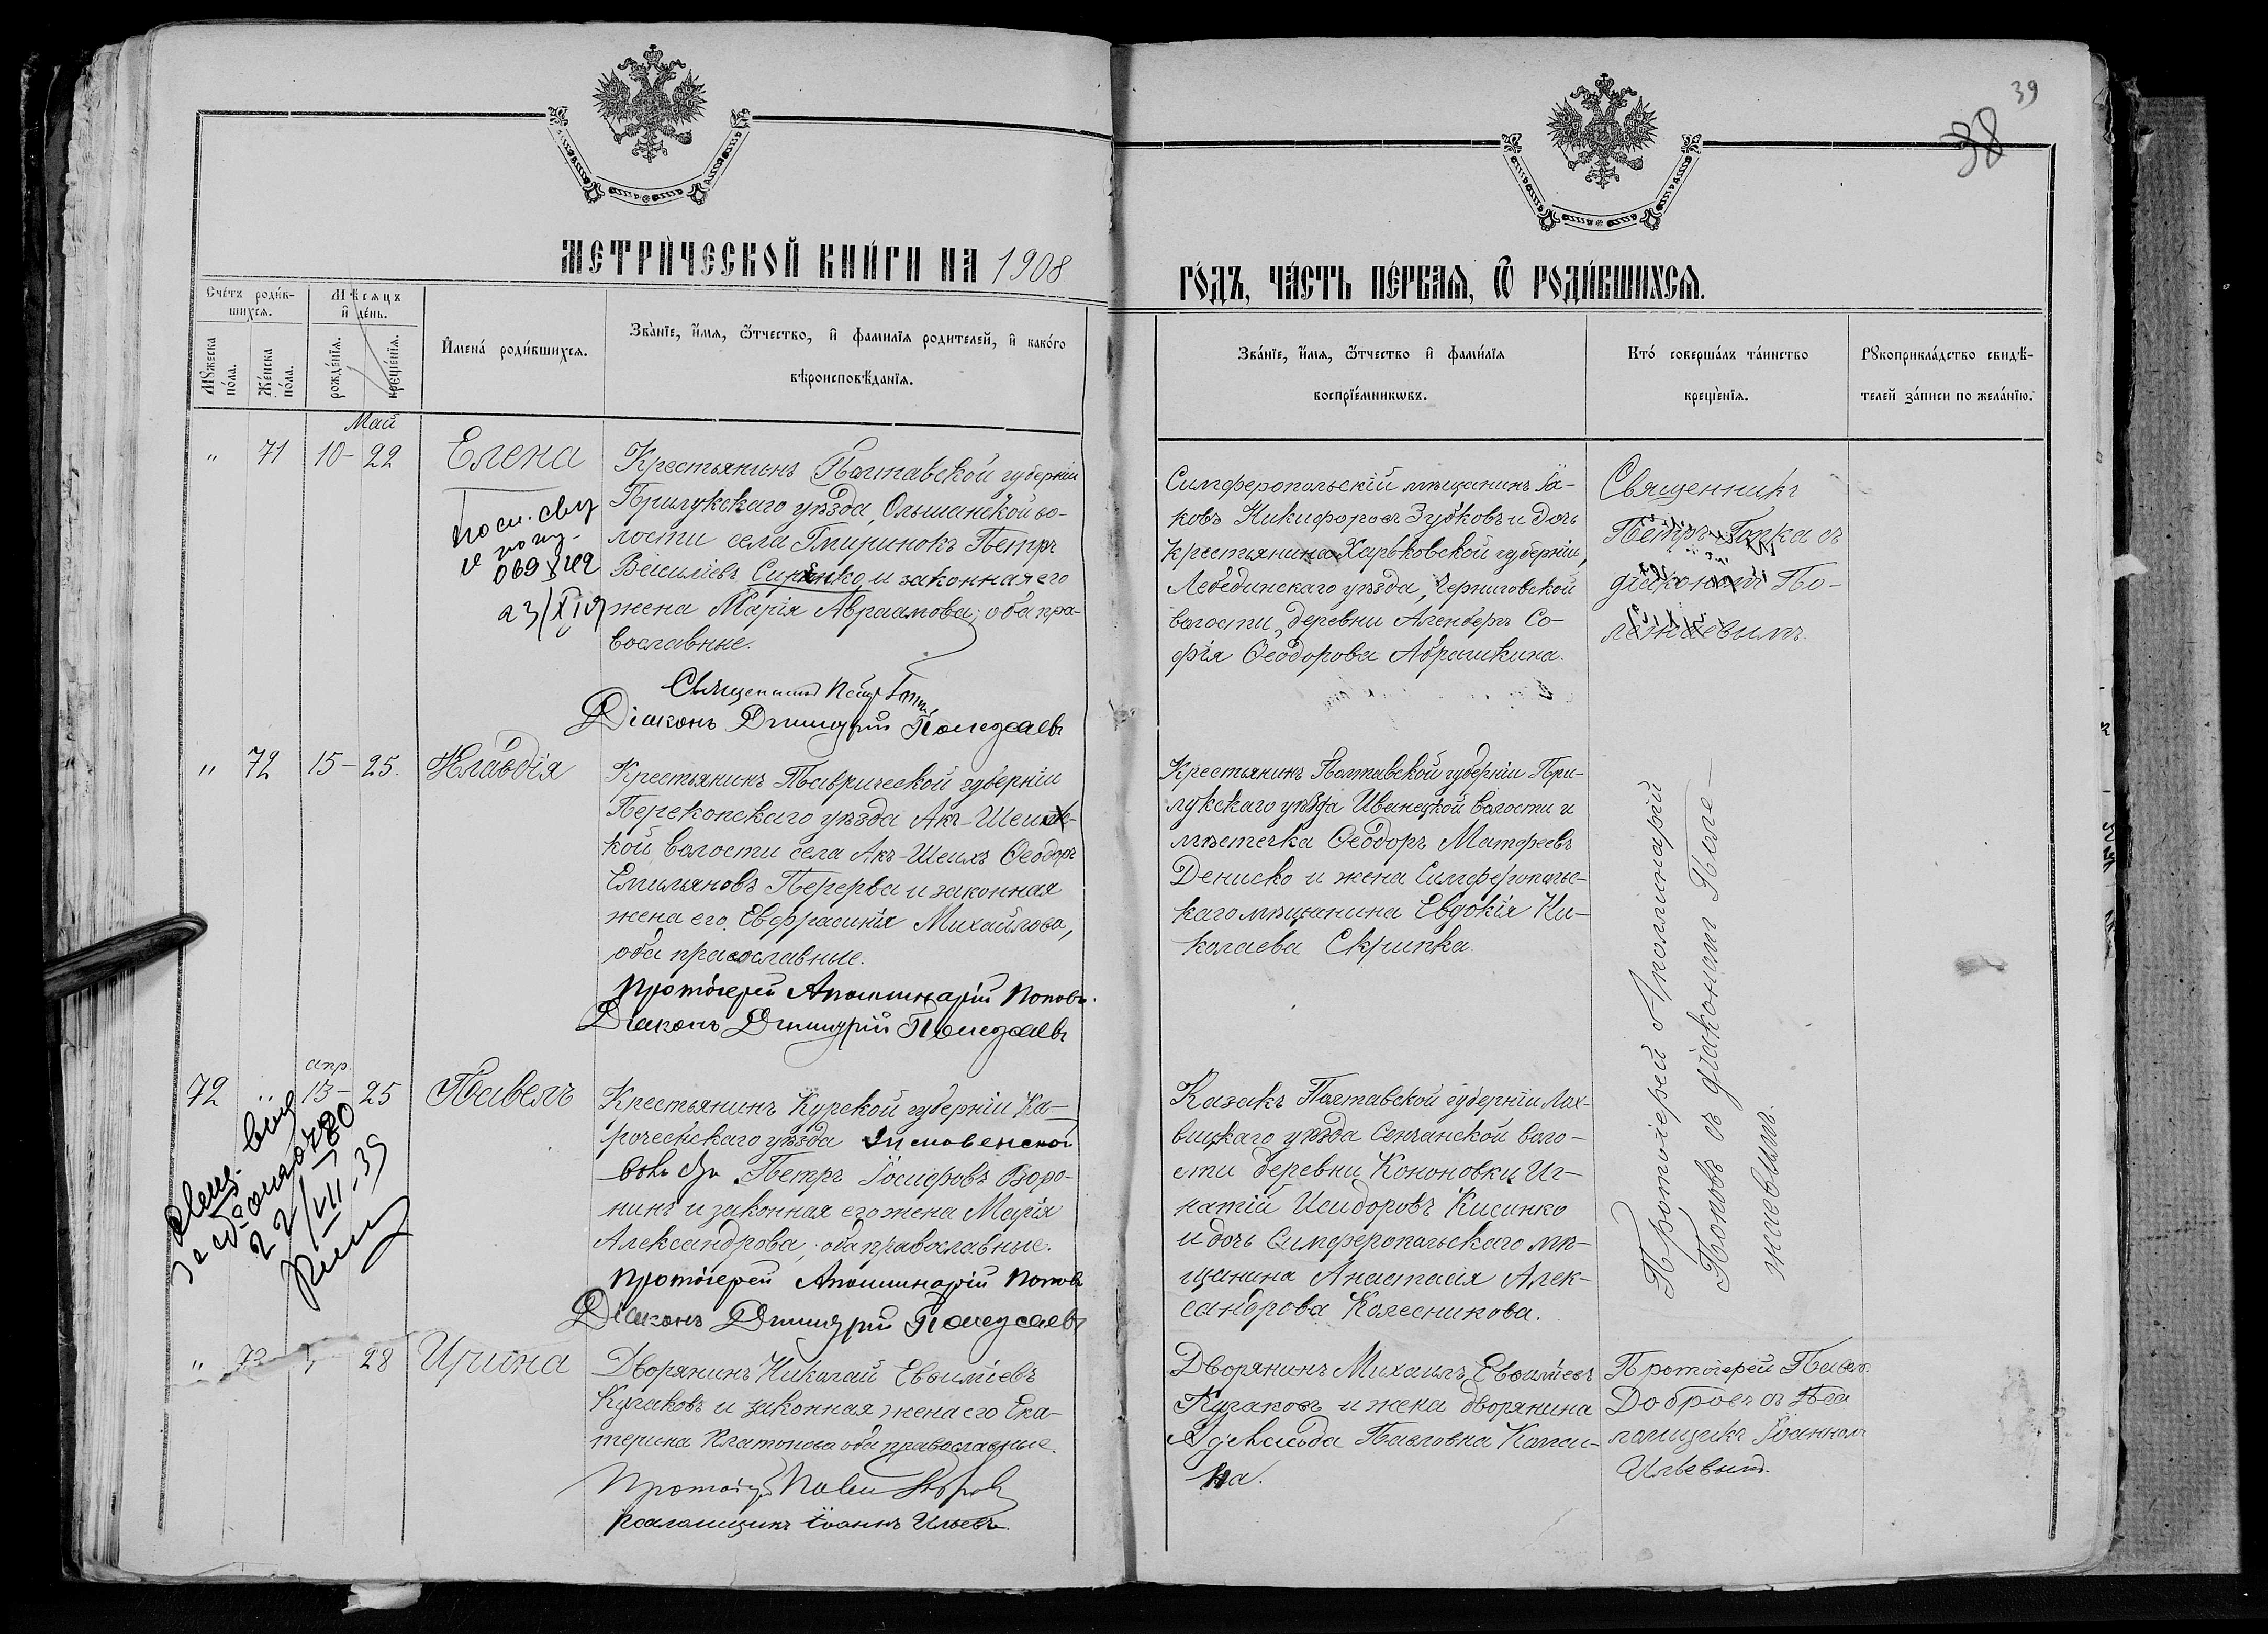 39
38
МЕТРИЧЕСКОЙ КНИГИ НА 1908
ГОДЪ, ЧАСТЬ ПЕРВАЯ, Ѿ РОДИВШИХСЯ.
Счетъ родив-
шихся.
Мѣсяцъ
и день.
Мужеска
пола.
Женска
пола.
рожденїя.
крещенїя.
Имена родившихся.
Званїе, имя, ѿтчество, и фамилїя родителей, и какого
вѣроисповѣданїя.
Званїе, имя, ѿтчество и фамилїя
воспрїемникѡвъ.
Кто совершалъ таинство
крещенїя.
Рукоприкладство свидѣ-
телей записи по желанїю.
Май
" 71 10 - 22 Елена
Крестьянинъ Полтавской губерніи
Прилукскаго уѣзда, Ольшанской во-
лости села Гмиринокъ Петръ
Василіевъ Сиренко и законная его
жена Марія Авраамова; оба пра-
вославные.
Священникъ Петръ
Діаконъ Димитрій Полежаевъ
Симферопольскій мѣщанинъ Іа-
ковъ Никифоровъ Зубковъ и дочь
крестьянина Харьковской губерніи,
Лебединскаго уѣзда, Черниговской
волости, деревни Агенбергъ Со-
фія Ѳеодорова Абрашкина.
Священникъ
Петръ съ
діакономъ По-
лежаевымъ.
" 72 15 - 25. Клавдія
Крестьянинъ Таврической губерніи
Перекопскаго уѣзда Акъ-Шеихс-
кой волости села Акъ-Шеихъ Ѳеодоръ
Емильяновъ Перерва и законная
жена его Евфрасинія Михайлова,
оба православные.
Протоіерей Аполлинарій Поповъ.
Діаконъ Димитрій Полежаевъ
Крестьянинъ Полтавской губерніи При-
лукскаго уѣзда Иваницкой волости и
мѣстечка Ѳеодоръ Матфеевъ
Дениско и жена Симферопольс-
каго мѣщанина Евдокія Ни-
колаева Скрипка.
Протоіерей Аполлинарій
Поповъ съ діакономъ Поле-
жаевымъ.
апр.
72 " 13 - 25 Павелъ
22/VII-39
Крестьянинъ Курской губерніи Ко-
рочанскаго уѣзда
Петръ Іосифовъ Воро-
нинъ и законная его жена Марія
Александрова, оба православные.
Протоіерей Аполлинарій Поповъ
Діаконъ Димитрій Полежаевъ
Казакъ Полтавской губерніи Лох-
вицкаго уѣзда Сенчанской воло-
сти деревни Кононовки Иг-
натій Исидоровъ Кисинко
и дочь Симферопольскаго мѣ-
щанина Анастасія Алек-
сандрова Колесникова.
" 73 28 Ирина
Дворянинъ Николай Евѳиміевъ
Кугаковъ и законная жена его Ека-
терина Платонова оба православные.
Протоіерей Павелъ Добровъ
Псаломщикъ Іоаннъ Ильевъ.
Дворянинъ Михаилъ Евѳиміевъ
Кугаковъ и жена дворянина
Павловна
на.
Протоіерей Павелъ
Добровъ съ Пса
ломщикъ Іоанномъ
Ильевымъ.